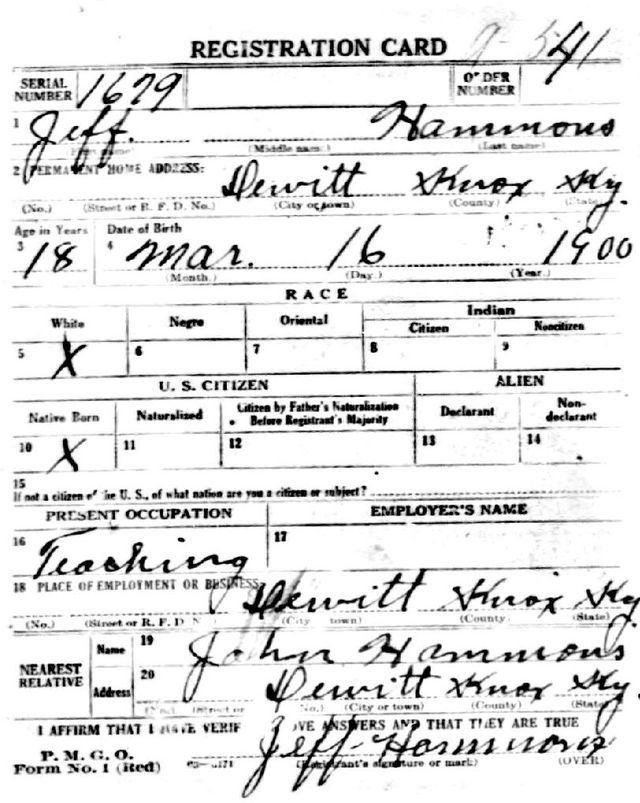 REGISTRATION CARD
541
SERIAL NUMBER 1679 ORDER NUMBER
1 Jeff. Hammons
(Middle name) (Last name)
2 PERMANENT HOME ADDRESS: Dewitt Knox Ky.
(No.) (Street or R. F. D. No.) (City or town) (County) (State)
Age in Years Date of Birth
3 18 4 Mar. 16 1900
(Month.) (Day.) (Year.)
RACE
White Negro Oriental Indian
Citizen Noncitizen
5 X 6 7 8 9
U. S. CITIZEN ALIEN
Native Born Naturalized Citizen by Father's Naturalization Before Registrant's Majority Declarant Non-declarant
10 X 11 12 13 14
15
If not a citizen of the U. S., of what nation are you a citizen or subject?
PRESENT OCCUPATION EMPLOYER'S NAME
16 Teaching 17
18 PLACE OF EMPLOYMENT OR BUSINESS: Dewitt Knox Ky.
(No.) (Street or R. F. D. N (City town) (County) (State)
NEAREST RELATIVE Name 19 John Hammons
Address 20 Dewitt Knox Ky.
(Street or No.) (City or town) (County) (State)
I AFFIRM THAT I HAVE VERIF OVE ANSWERS AND THAT THEY ARE TRUE
P. M. G. O.
Form No. 1 (Red) Jeff Hammons
(Registrant's signature or mark) (OVER)